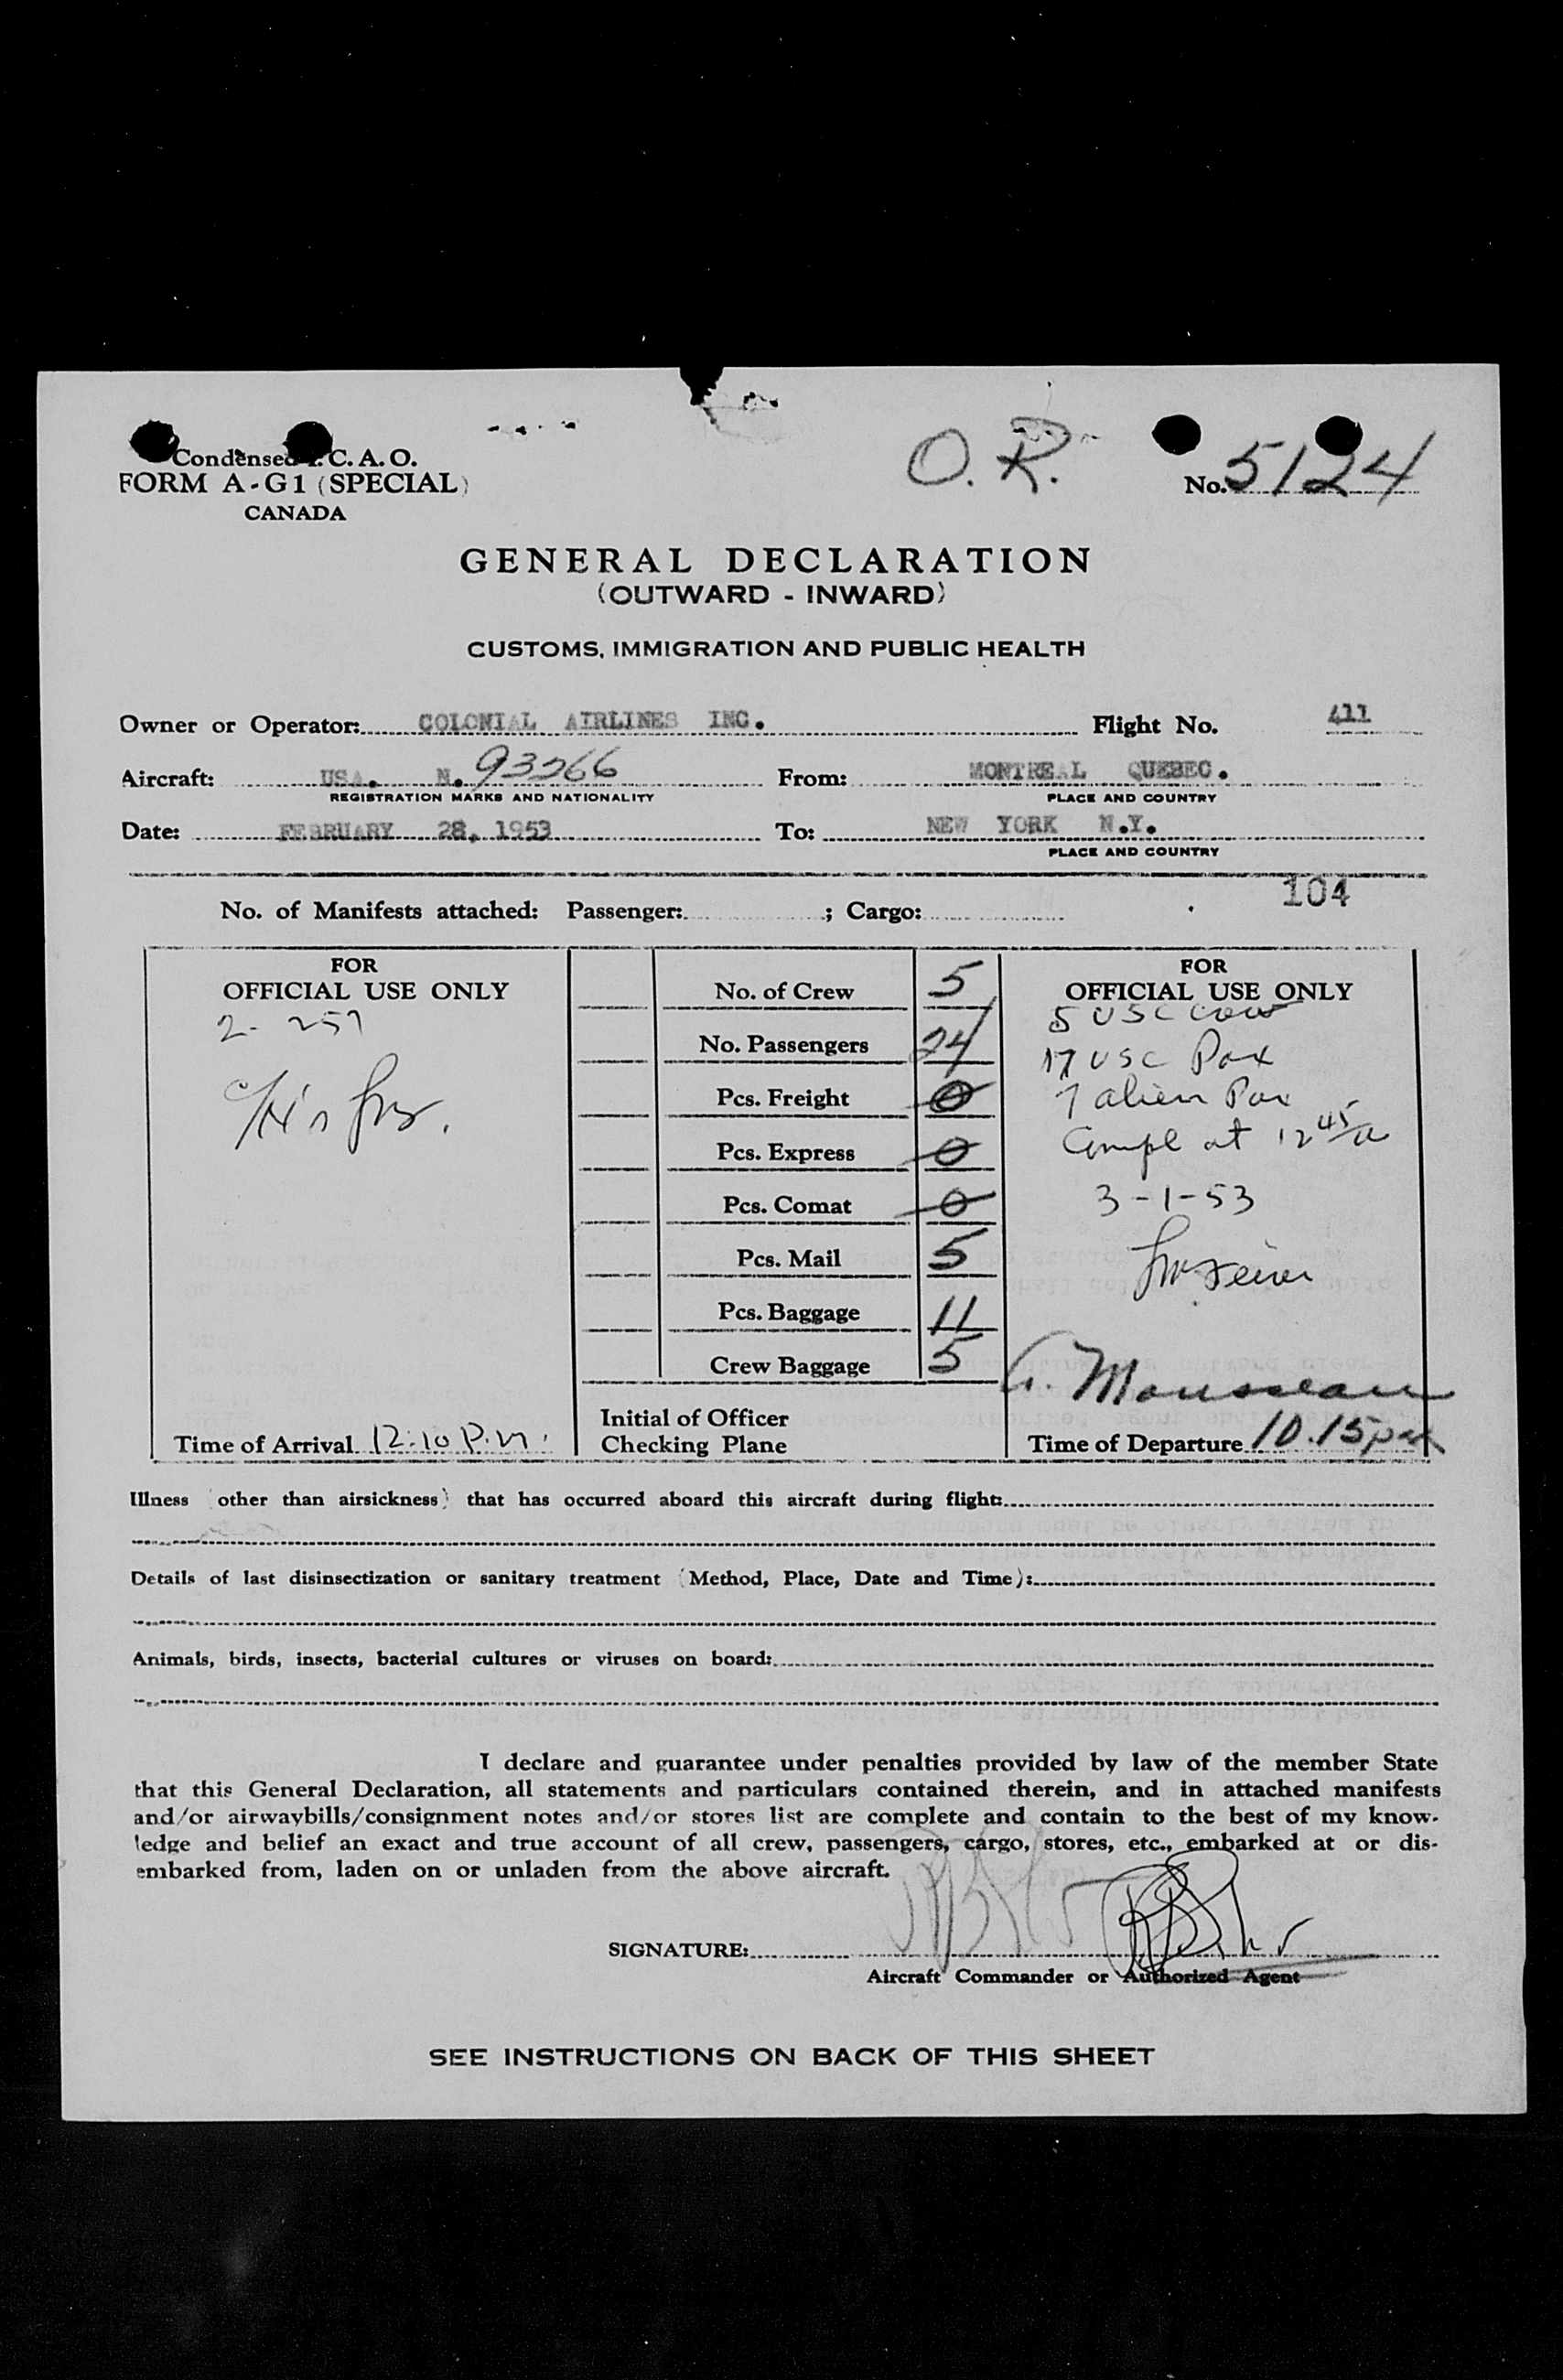 O.R.
No. 5124
Condensed I.C.A.O.
FORM A-G1 (SPECIAL)
CANADA
GENERAL DECLARATION
(OUTWARD - INWARD)
CUSTOMS, IMMIGRATION AND PUBLIC HEALTH
Owner or Operator: COLONIAL AIRLINES INC. Flight No. 411
Aircraft: USA. N. 93266 From: MONTREAL QUEBEC.
REGISTRATION MARKS AND NATIONALITY PLACE AND COUNTRY
Date: FEBRUARY 28, 1953 To: NEW YORK N.Y.
PLACE AND COUNTRY
104
No. of Manifests attached: Passenger: ; Cargo:
FOR
OFFICIAL USE ONLY
2- 257
Time of Arrival 12:10 P.M.
No. of Crew 5
No. Passengers 24
Pcs. Freight 0
Pcs. Express 0
Pcs. Comat 0
Pcs. Mail 5
Pcs. Baggage 11
Crew Baggage 5
Initial of Officer
Checking Plane
FOR
OFFICIAL USE ONLY
5 USC Crew
17 USC Pax
7 alien Pax
Compl at 12 45/a
3-1-53
Mousseau
Time of Departure 10.15 pm
Illness (other than airsickness) that has occurred aboard this aircraft during flight:
Details of last disinsectization or sanitary treatment (Method, Place, Date and Time):
Animals, birds, insects, bacterial cultures or viruses on board:
I declare and guarantee under penalties provided by law of the member State
that this General Declaration, all statements and particulars contained therein, and in attached manifests
and/or airwaybills/consignment notes and/or stores list are complete and contain to the best of my know-
ledge and belief an exact and true account of all crew, passengers, cargo, stores, etc., embarked at or dis-
embarked from, laden on or unladen from the above aircraft.
SIGNATURE:
Aircraft Commander or Authorized Agent
SEE INSTRUCTIONS ON BACK OF THIS SHEET